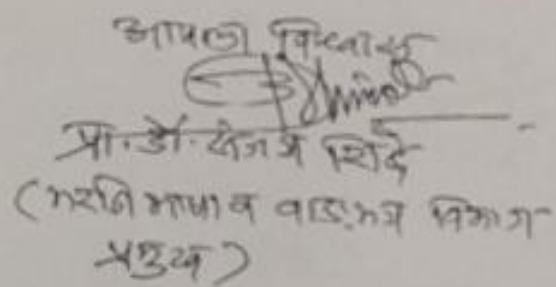 आपला विश्वासू
प्रा. डॉ. संजय शिंदे
(मराठी भाषा व वाङ्मय विभाग
प्रमुख)